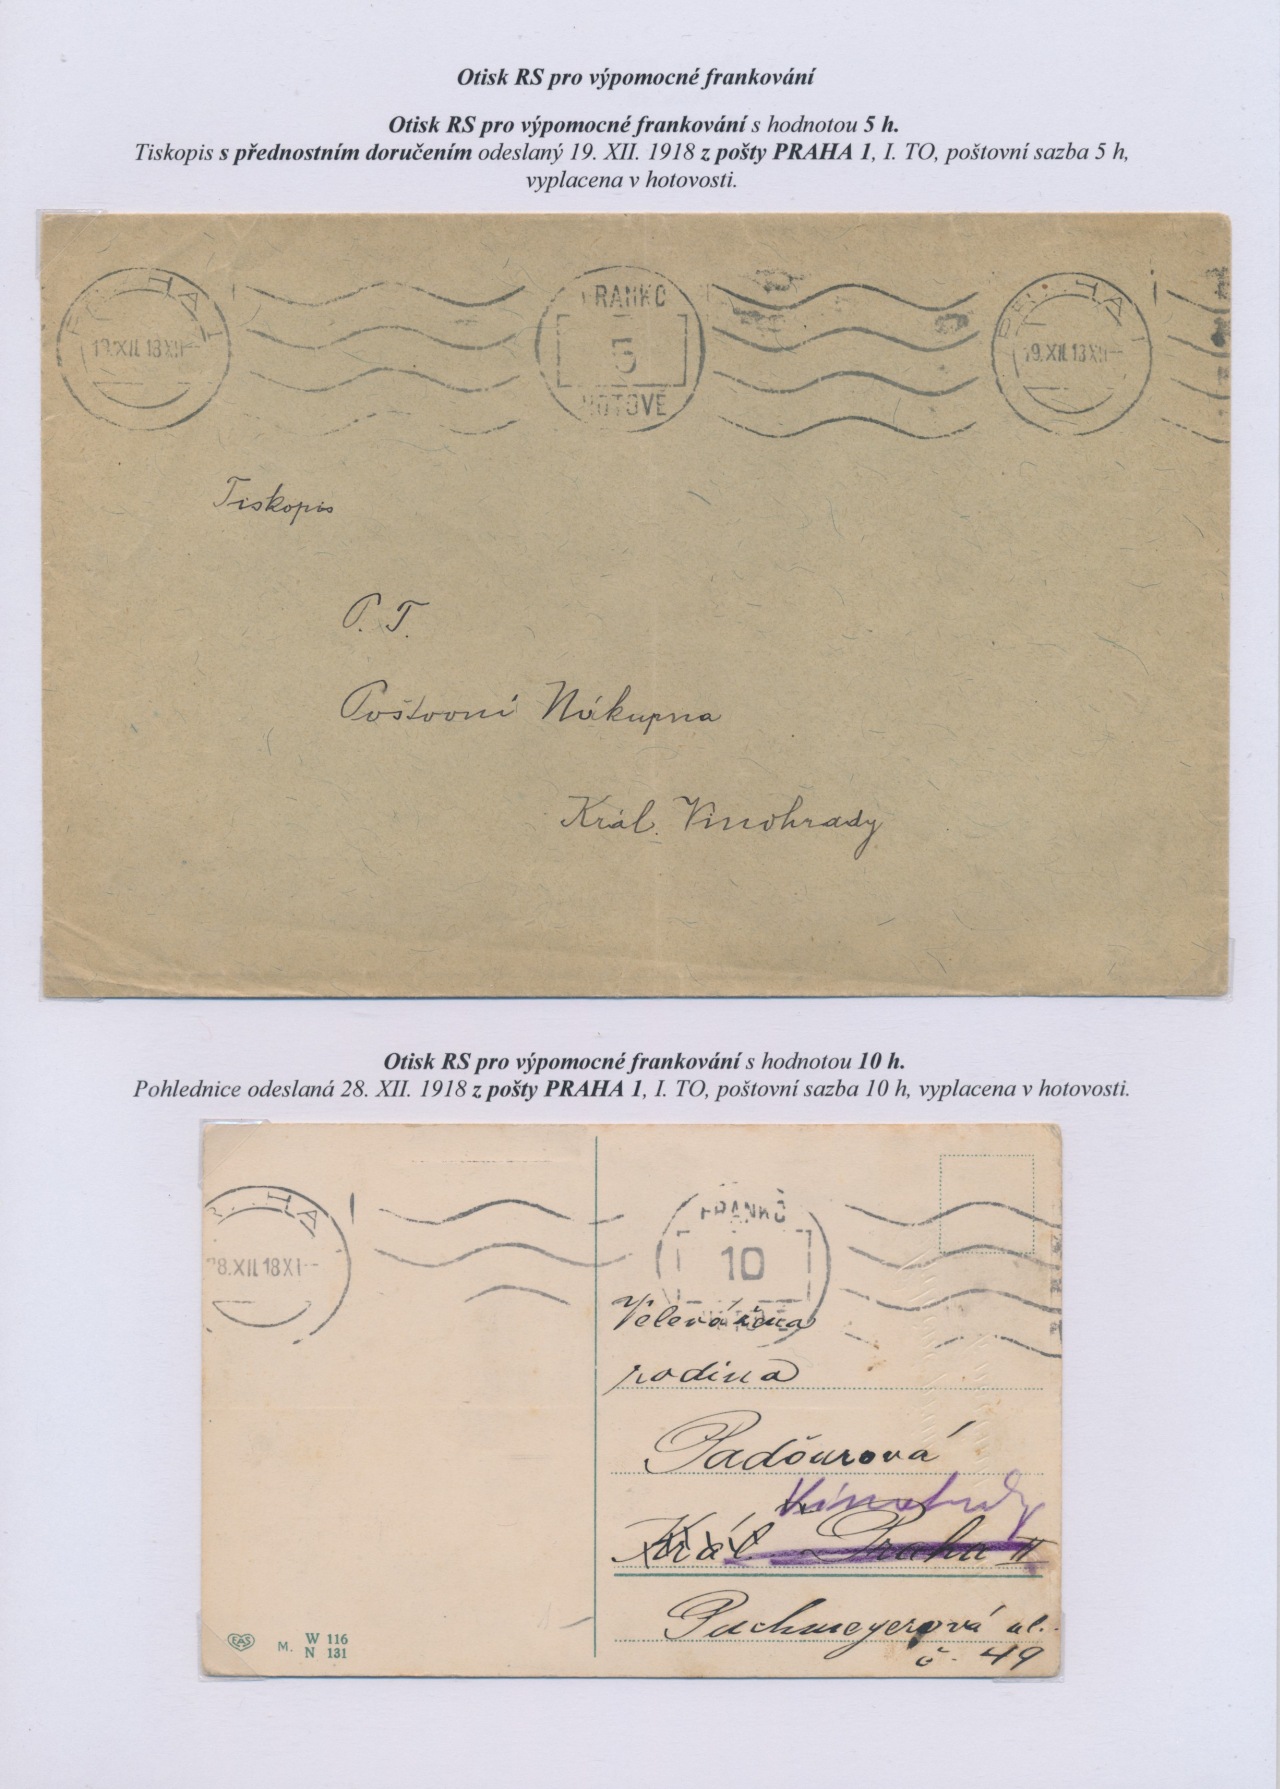 Otisk RS pro výpomocné frankování
Otisk RS pro výpomocné frankování s hodnotou 5 h.
Tiskopis s přednostním doručením odeslaný 19. XII. 1918 z pošty PRAHA 1, I. TO, poštovní sazba 5 h,
vyplacena v hotovosti.
FRANKO
5
HOTOVĚ
19.XII.18 XII--
19.XII.18 XII--
Tiskopis
P. T.
Poštovní Nákupna
Král. Vinohrady
Otisk RS pro výpomocné frankování s hodnotou 10 h.
Pohlednice odeslaná 28. XII. 1918 z pošty PRAHA 1, I. TO, poštovní sazba 10 h, vyplacena v hotovosti.
28.XII.18 XI--
FRANKO
10
rodina
Padourová
Vinohrady
Král Praha II
Puchmeyerová ul.
č. 49
EAS
M. W 116
N 131